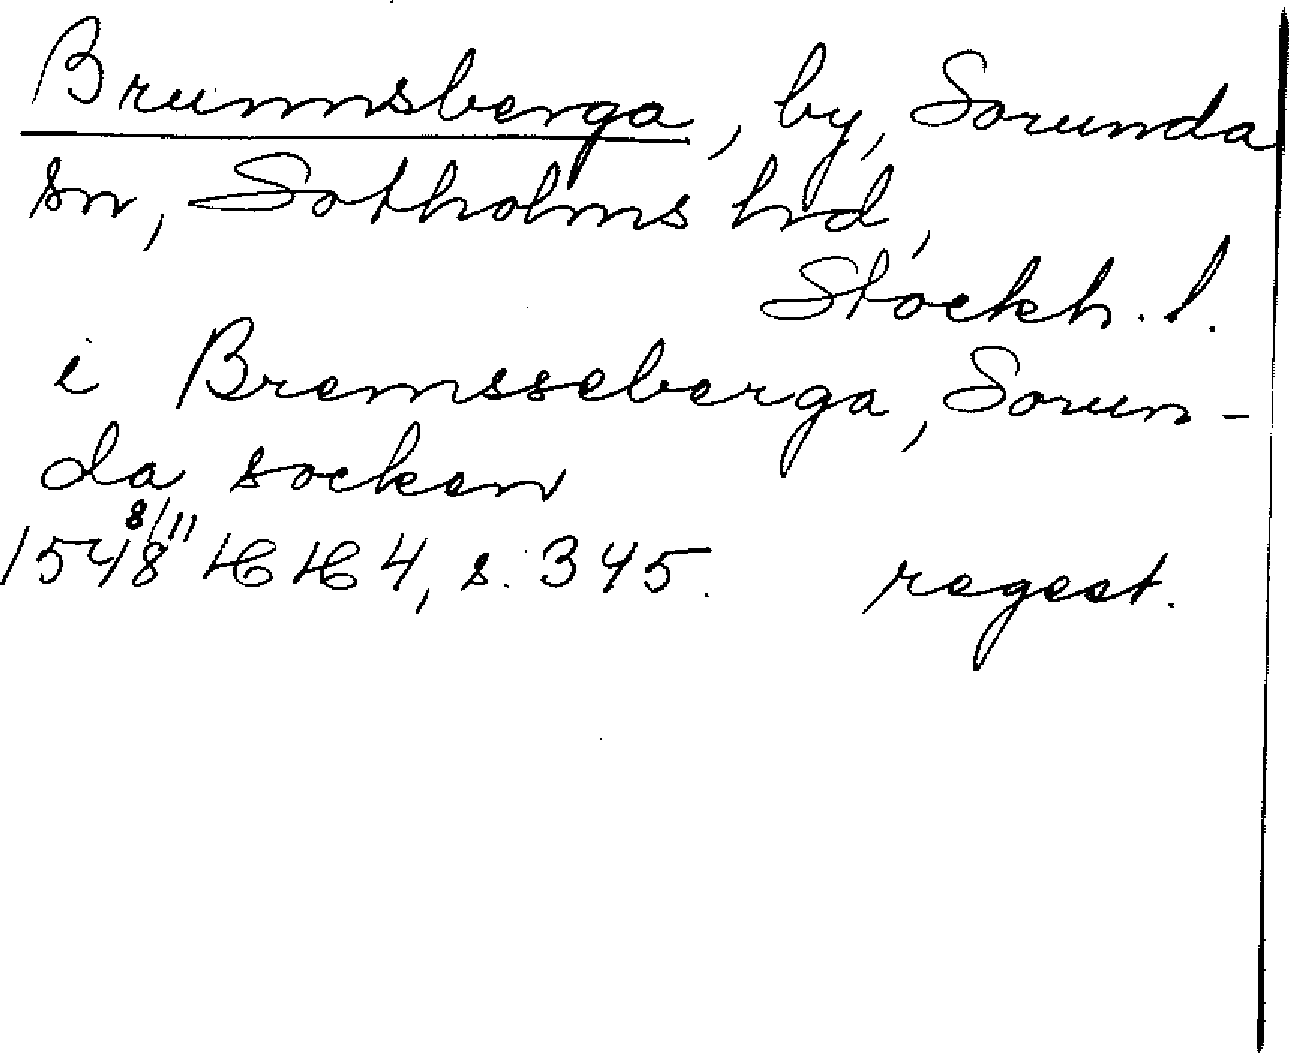 Brunnsberga, by, Sorunda
sn, Sotholms hrd,
Stockh. l.
i Bremsseberga, Sorun-
da socken
1548 8/11 HH 4, s. 345. regest.